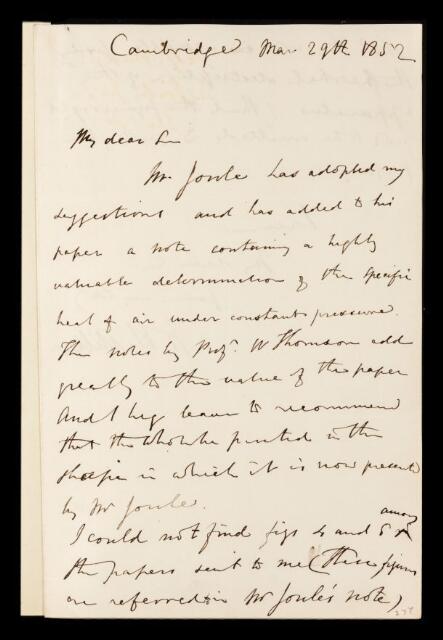 Cambridge Mar 29th 1852
My dear Sir
Mr. Joule has adopted my
suggestions and has added to his
paper a note containing a highly
valuable determination of the specific
heat of air under constant pressure.
The notes by Profr. W Thomson add
greatly to the value of the paper
And I beg leave to recommend
that the whole be printed in the
shape in which it is now presented
by Mr Joule.
I could not find figs 4 and 5 among
the papers sent to me (These figures
are referred to in Mr Joule's note)